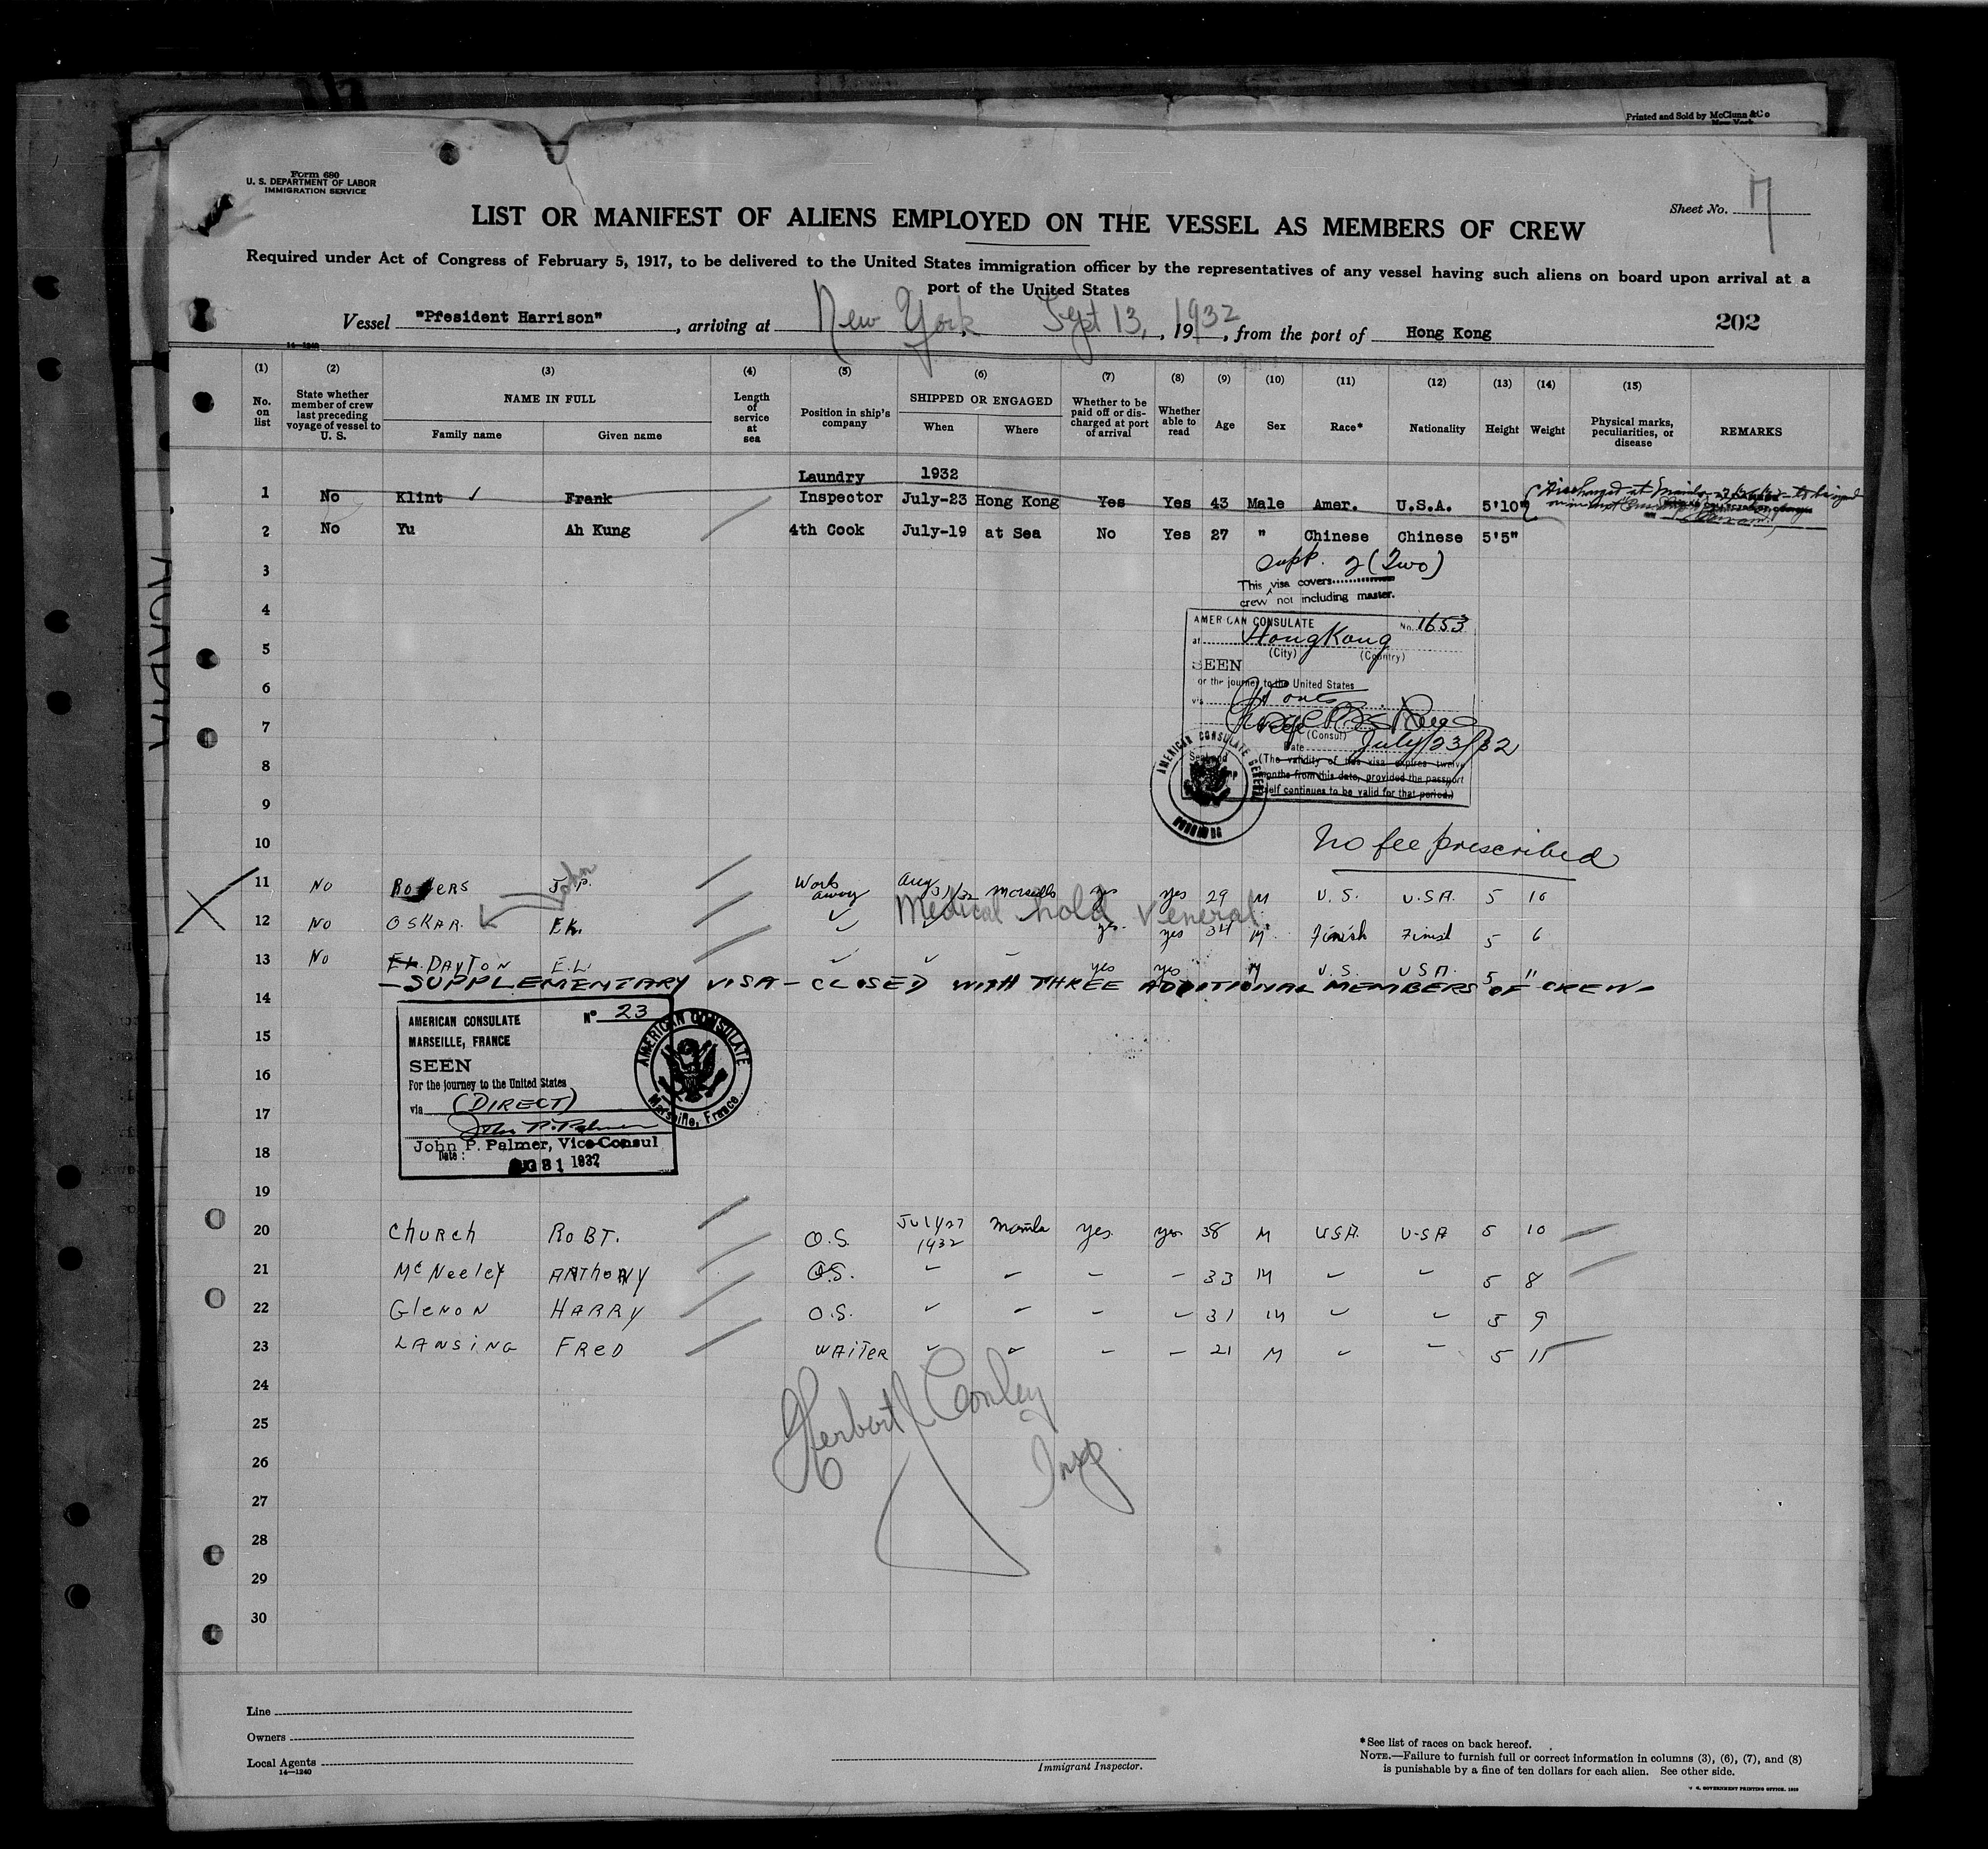 Printed and Sold by McClunn & Co
New York
Form 680
U. S. DEPARTMENT OF LABOR
IMMIGRATION SERVICE
Sheet No. 17
LIST OR MANIFEST OF ALIENS EMPLOYED ON THE VESSEL AS MEMBERS OF CREW
Required under Act of Congress of February 5, 1917, to be delivered to the United States immigration officer by the representatives of any vessel having such aliens on board upon arrival at a
port of the United States
Vessel "President Harrison", arriving at New York, Sept 13, 1932, from the port of Hong Kong 202
14-1240
(1) (2) (3) (4) (5) (6) (7) (8) (9) (10) (11) (12) (13) (14) (15)
No. on list
State whether member of crew last preceding voyage of vessel to U. S.
NAME IN FULL
Family name Given name
Length of service at sea
Position in ship's company
SHIPPED OR ENGAGED
When Where
Whether to be paid off or discharged at port of arrival
Whether able to read
Age Sex Race* Nationality Height Weight
Physical marks, peculiarities, or disease
REMARKS
Laundry 1932
1 No Klint ✓ Frank Inspector July-23 Hong Kong Yes Yes 43 Male Amer. U.S.A. 5'10" Discharged at Manila
2 No Yu Ah Kung 4th Cook July-19 at Sea No Yes 27 " Chinese Chinese 5'5"
3
supp. 2 (Two)
This visa covers
crew not including master.
4
AMERICAN CONSULATE No. 1653
at Hong Kong
(City) (Country)
5
SEEN
6
for the journey to the United States
via
7
(Consul)
Date July 23/32
AMERICAN CONSULATE GENERAL
HONGKONG
8
(The validity of this visa expires twelve
months from this date, provided the passport
itself continues to be valid for that period.)
9
10
No fee prescribed
11 No Rogers J.P. John Work away Aug 31/32 Marseilles yes yes 29 M U.S. U.S.A. 5 10
Medical hold Veneral
12 No OSKAR. EK. ✓ ✓ yes. yes 34 M Finish Finish 5 6
13 No DAYTON E.L. ✓ ✓ yes yes M U.S. USA. 5 11
- SUPPLEMENTARY VISA - CLOSED WITH THREE ADDITIONAL MEMBERS OF CREW -
14
AMERICAN CONSULATE No 23
MARSEILLE, FRANCE
SEEN
For the journey to the United States
via (DIRECT)
John P. Palmer
John P. Palmer, Vice-Consul
Date: AUG 31 1932
AMERICAN CONSULATE
Marseille, France.
15
16
17
18
19
20 Church Robt. O.S. July 27 1932 Manila yes. yes 38 M USA. U-SA 5 10
21 McNeeley ANTHONY O.S. 33 M 5 8
22 Glenon HARRY O.S. 31 M 5 9
23 LANSING FRED WAITER 21 M 5 11
24
Herbert J Conley
Insp.
25
26
27
28
29
30
Line
Owners
Local Agents
14-1240
Immigrant Inspector.
*See list of races on back hereof.
NOTE.—Failure to furnish full or correct information in columns (3), (6), (7), and (8)
is punishable by a fine of ten dollars for each alien. See other side.
U. S. GOVERNMENT PRINTING OFFICE. 1928